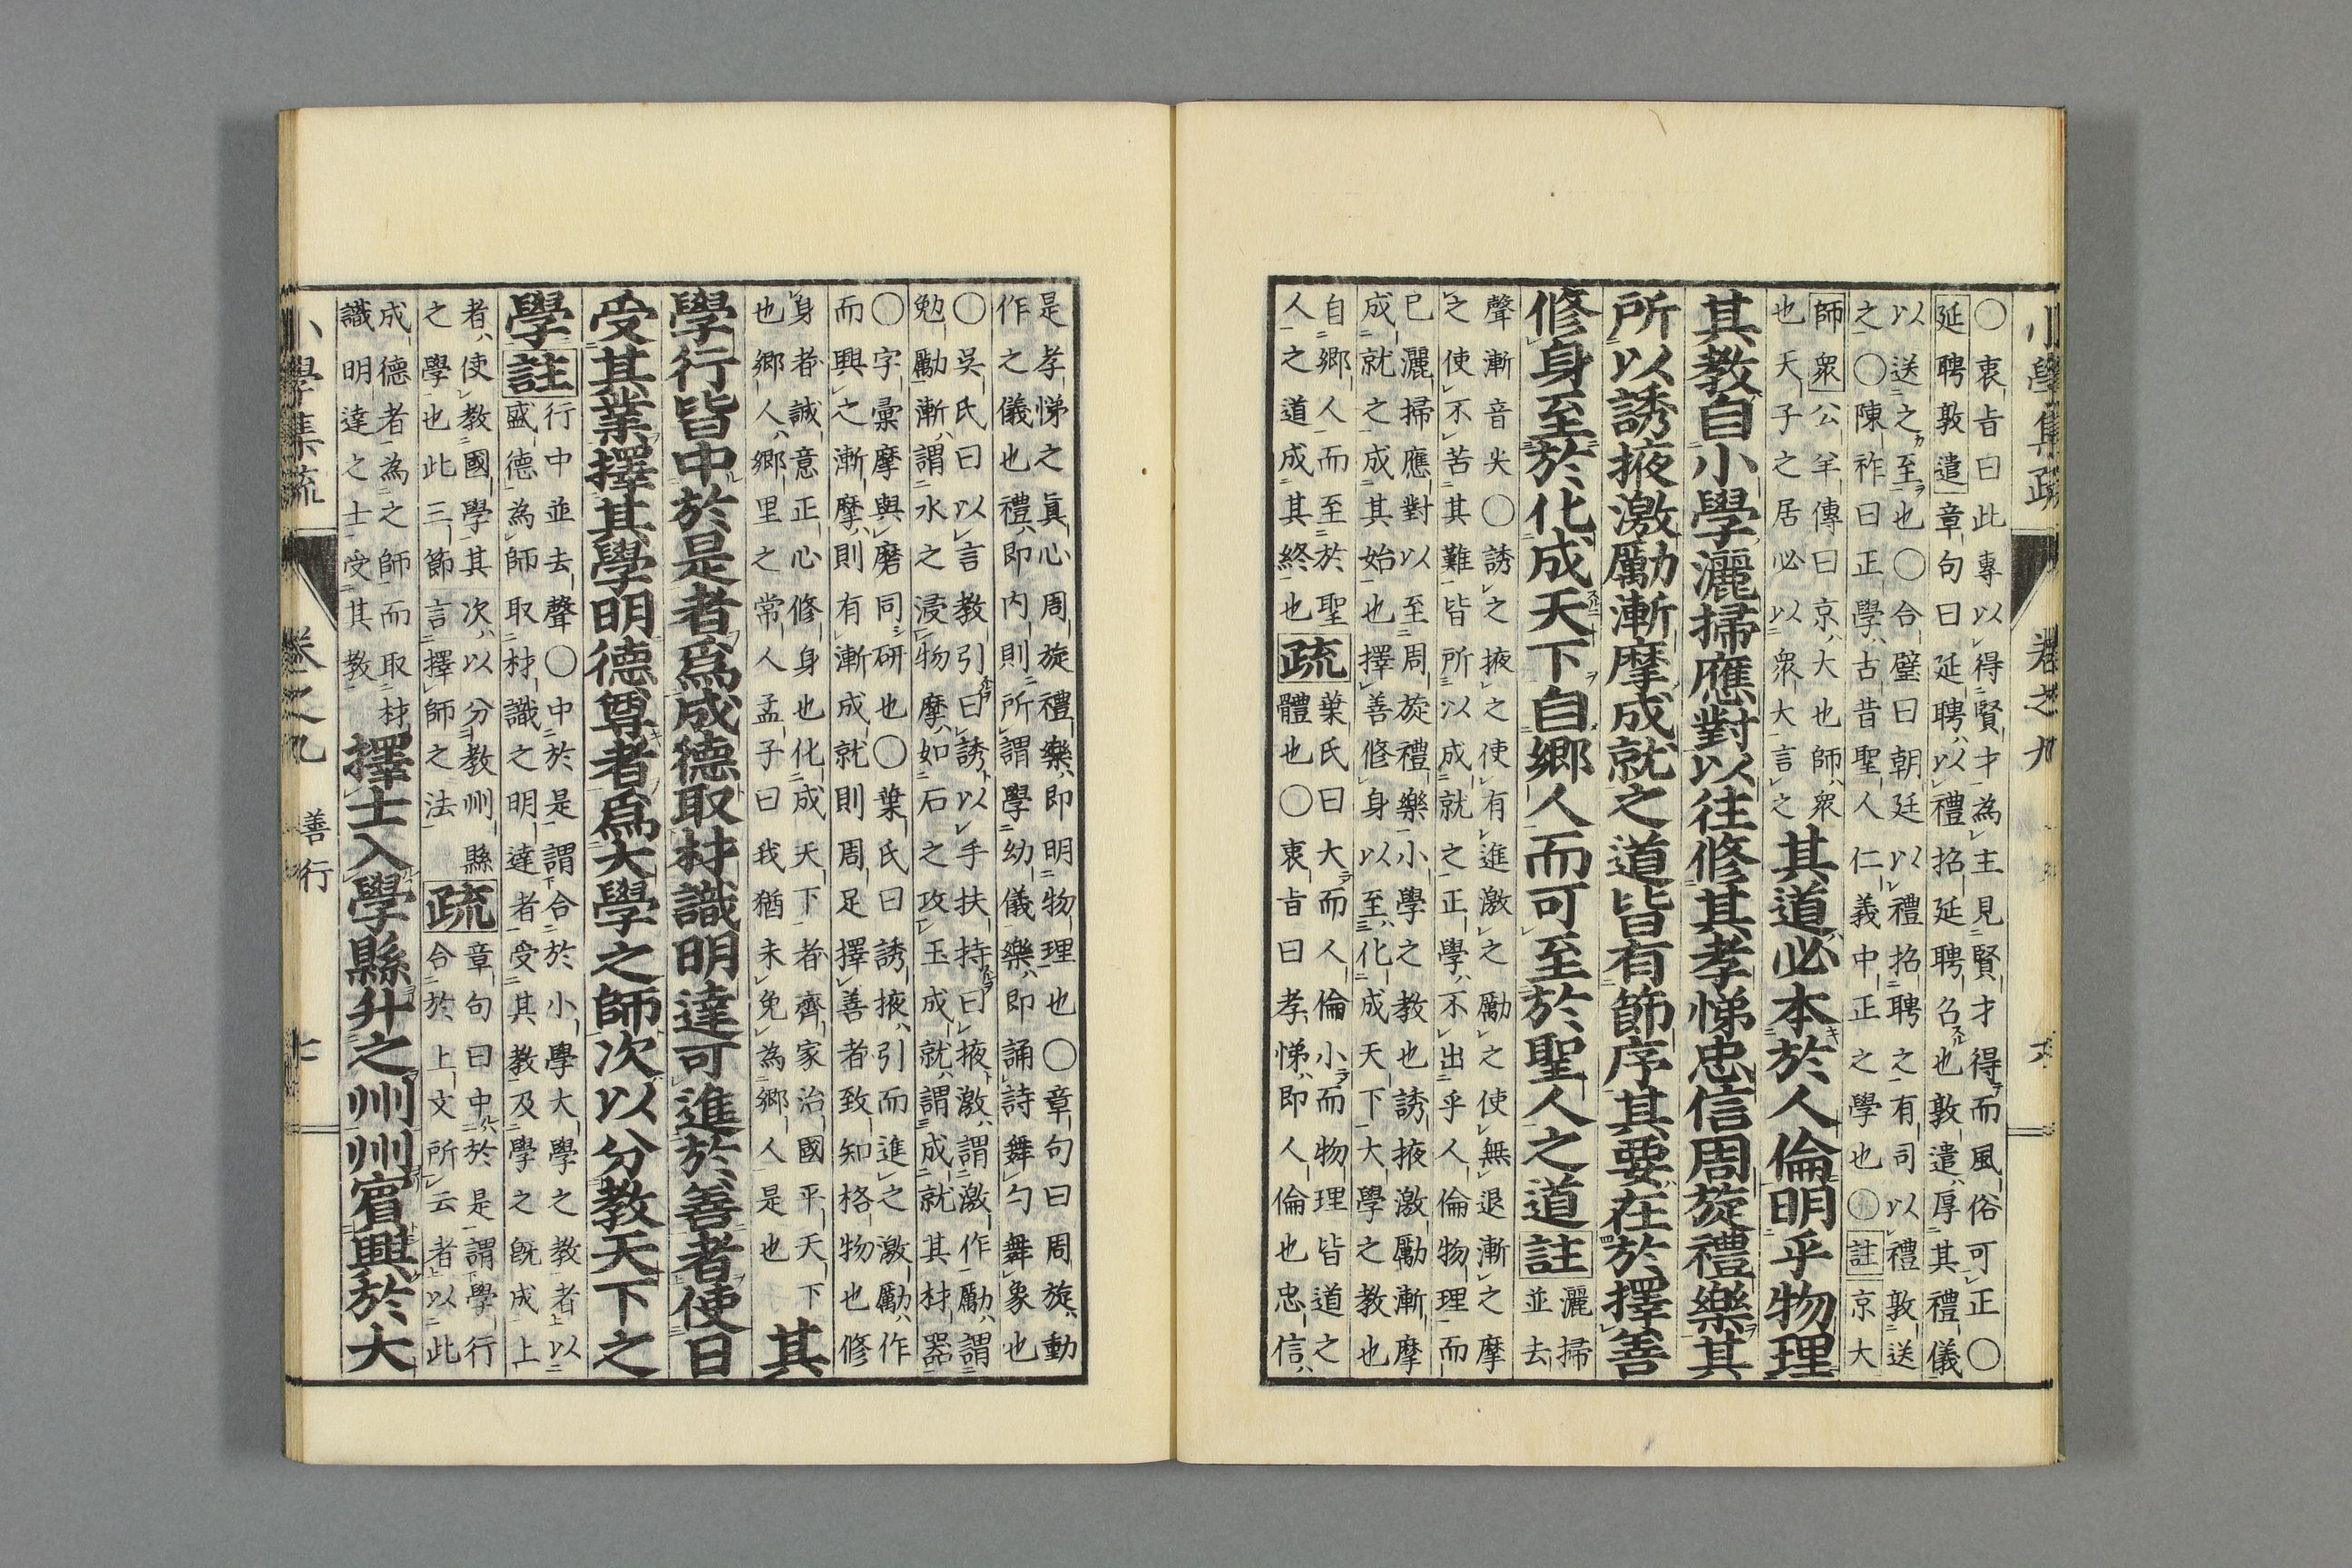 小學集疏 卷之九 六
○衷旨曰此專以得賢才為主見賢才得而風俗可正○
延聘敦遣章句曰延聘以禮招延聘召也敦遣厚其禮儀
以送之至也○合璧曰朝廷以禮招聘之有司以禮敦送
之○陳祚曰正學古昔聖人仁義中正之學也○註京大
師衆公羊傳曰京大也師衆
也天子之居必以衆大言之
其道必本於人倫明乎物理
其教自小學灑掃應對以往修其孝悌忠信周旋禮樂其
所以誘掖激勵漸摩成就之道皆有節序其要在於擇善
修身至於化成天下自鄉人而可至於聖人之道註
灑掃
並去
聲漸音尖○誘之掖之使有進激之勵之使無退漸之摩
之使不苦其難皆所以成就之正學不出乎人倫物理而
已灑掃應對以至周旋禮樂小學之教也誘掖激勵漸摩
成就之成其始也擇善修身以至化成天下大學之教也
自鄉人而至於聖
人之道成其終也
疏
葉氏曰大而人倫小而物理皆道之
體也○衷旨曰孝悌即人倫也忠信
是孝悌之眞心周旋禮樂即明物理也○章句曰周旋動
作之儀也禮即内則所謂學幼儀樂即誦詩舞勺舞象也
○吳氏曰以言教引曰誘以手扶持曰掖激謂激作勵謂
勉勵漸謂水之浸物摩如石之攻玉成就謂成就其材器
○字彙摩與磨同研也○葉氏曰誘掖引而進之激勵作
而興之漸摩則有漸成就則周足擇善者致知格物也修
身者誠意正心修身也化成天下者齊家治國平天下
也鄉人鄉里之常人孟子曰我猶未免為鄉人是也
其
學行皆中於是者爲成德取材識明達可進於善者使日
受其業擇其學明德尊者爲大學之師次以分教天下之
學註
行中並去聲○中於是謂合於小學大學之教者以
盛德為師取材識之明達者受其教及學之旣成上
者使教國學其次以分教州縣
之學也此三節言擇師之法
疏
章句曰中於是謂學行
合於上文所云者以此
成德者為之師而取材
識明達之士受其教
擇士入學縣升之州州賓興於大
小學集疏 卷之九 善行 七